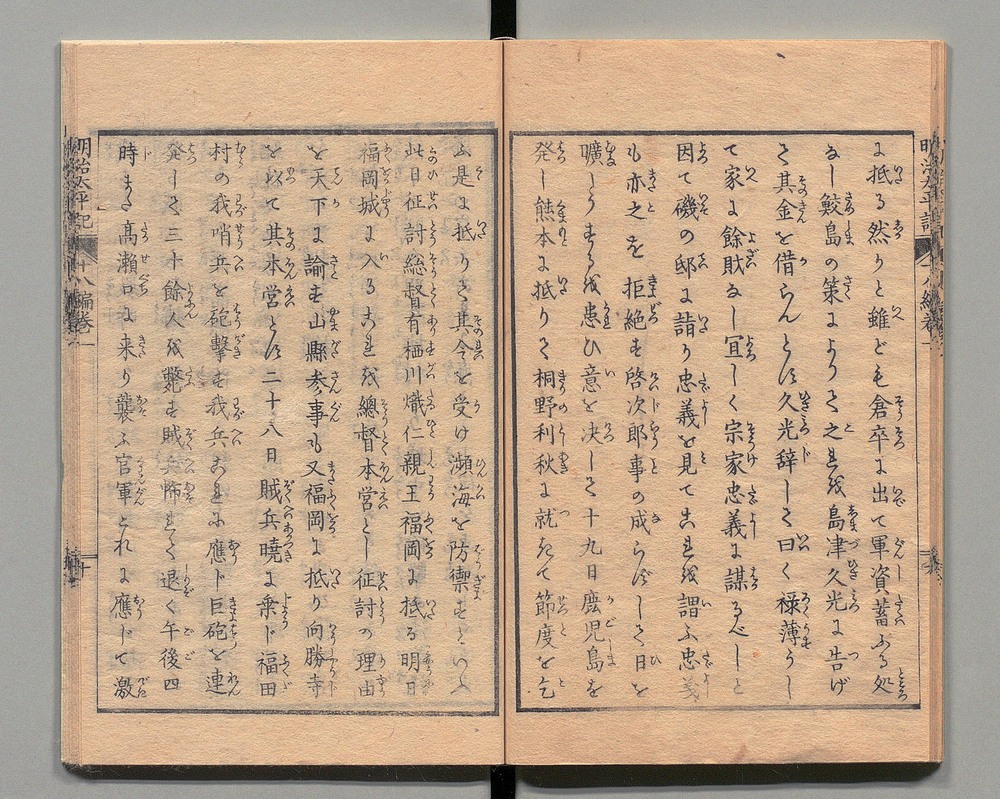 に抵る然りと雖ども倉卒に出て軍資蓄ふる処
なし鮫島の策によりて之を島津久光に告げ
て其金を借らんとす久光辞して曰く禄薄うし
て家に餘財なし宜しく宗家忠義に謀るべしと
因て磯の邸に詣り忠義を見て古れを謂ふ忠義
も亦之を拒絶す啓次郎事の成らずして日を
曠しうするを患ひ意を决して十九日麑児島を
発し熊本に抵りて桐野利秋に就きて節度を乞
ふ是に抵りて其令を受け瀕海を防禦すといふ
此日征討総督有栖川熾仁親王福岡に抵る明日
福岡城に入るこれを總督本営とし征討の理由
を天下に諭す山縣参事も又福岡に抵り向勝寺
を以て其本営とす二十八日賊兵暁に乗ド福田
村の我哨兵を砲撃す我兵これに應ド巨砲を連
発して三十餘人を斃す賊兵怖れて退く午後四
時また高瀬口に来り襲ふ官軍これに應じて激
明治太平記
十八編巻一